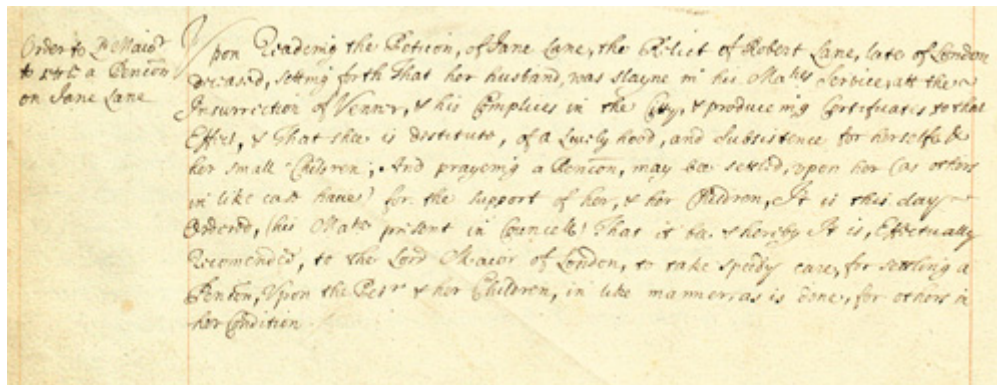 Order to Ld Maior
to settle a Pencon
on Jane Lane
Upon Reading the Peticon, of Jane Lane, the Relict of Robert Lane, late of London
deceased, setting forth That her husband, was slayne in his Maties Service, att the
Insurrection of Venner, & his Complices in the Citty, & produceing Certificates to that
Effect, & That shee is destitute, of a Lively hood, and Subsistence for herselfe &
her small Children; And prayeing a Pencon, may bee setled, upon her (as others
in like case have) for the support of her, & her Children, It is this day
Ordered, (his Matie present in Councell) That it be & hereby It is, Effectually
Recomended, to the Lord Maior of London, to take speedy care, for settling a
Pencon, Upon the Petr & her Children, in like manner, as is done, for others in
her Condition